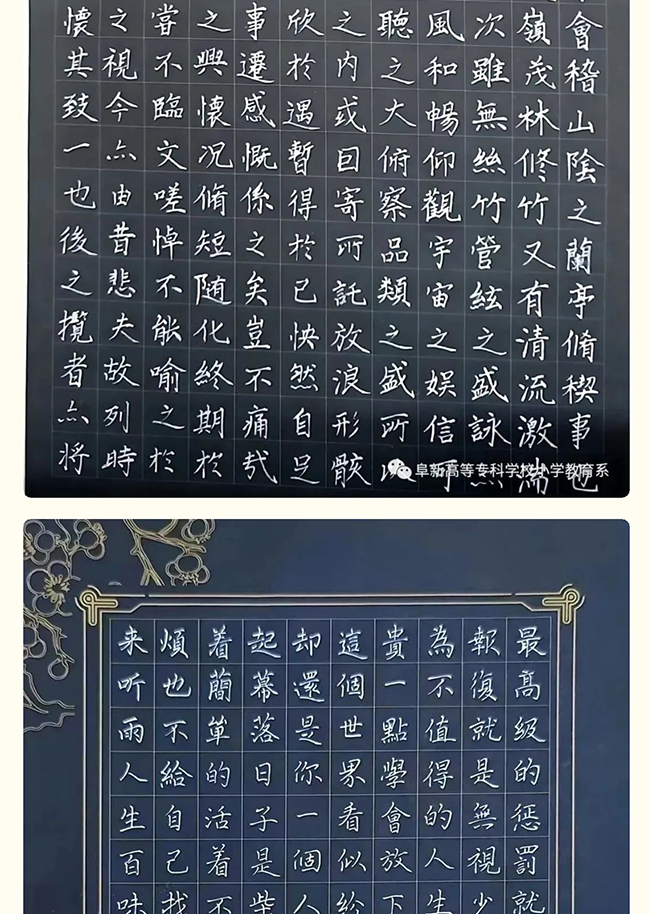 會稽山陰之蘭亭脩禊事也
嶺茂林修竹又有清流激湍
次雖無絲竹管絃之盛詠
風和暢仰觀宇宙之娛信可
聽之大俯察品類之盛所
之内或因寄所託放浪形骸
欣於遇暫得於己怏然自足
事遷感慨係之矣豈不痛哉
之興懷況脩短随化終期於
嘗不臨文嗟悼不能喻之於
之視今亦由昔悲夫故列時
懷其致一也後之攬者亦將
阜新高等专科学校小学教育系
最高级的惩罰就
報復就是無視少
為不值得的人生
貴一點學會放下
這個世界看似給
却還是你一個人
起幕落日子是柴
着蕳箪的活着不
煩也不給自己找
来听雨人生百味